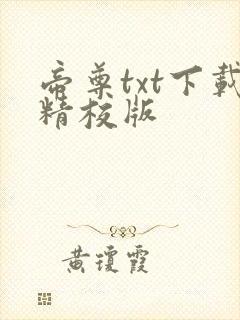 帝尊txt下載
精校版
黄瓊霞